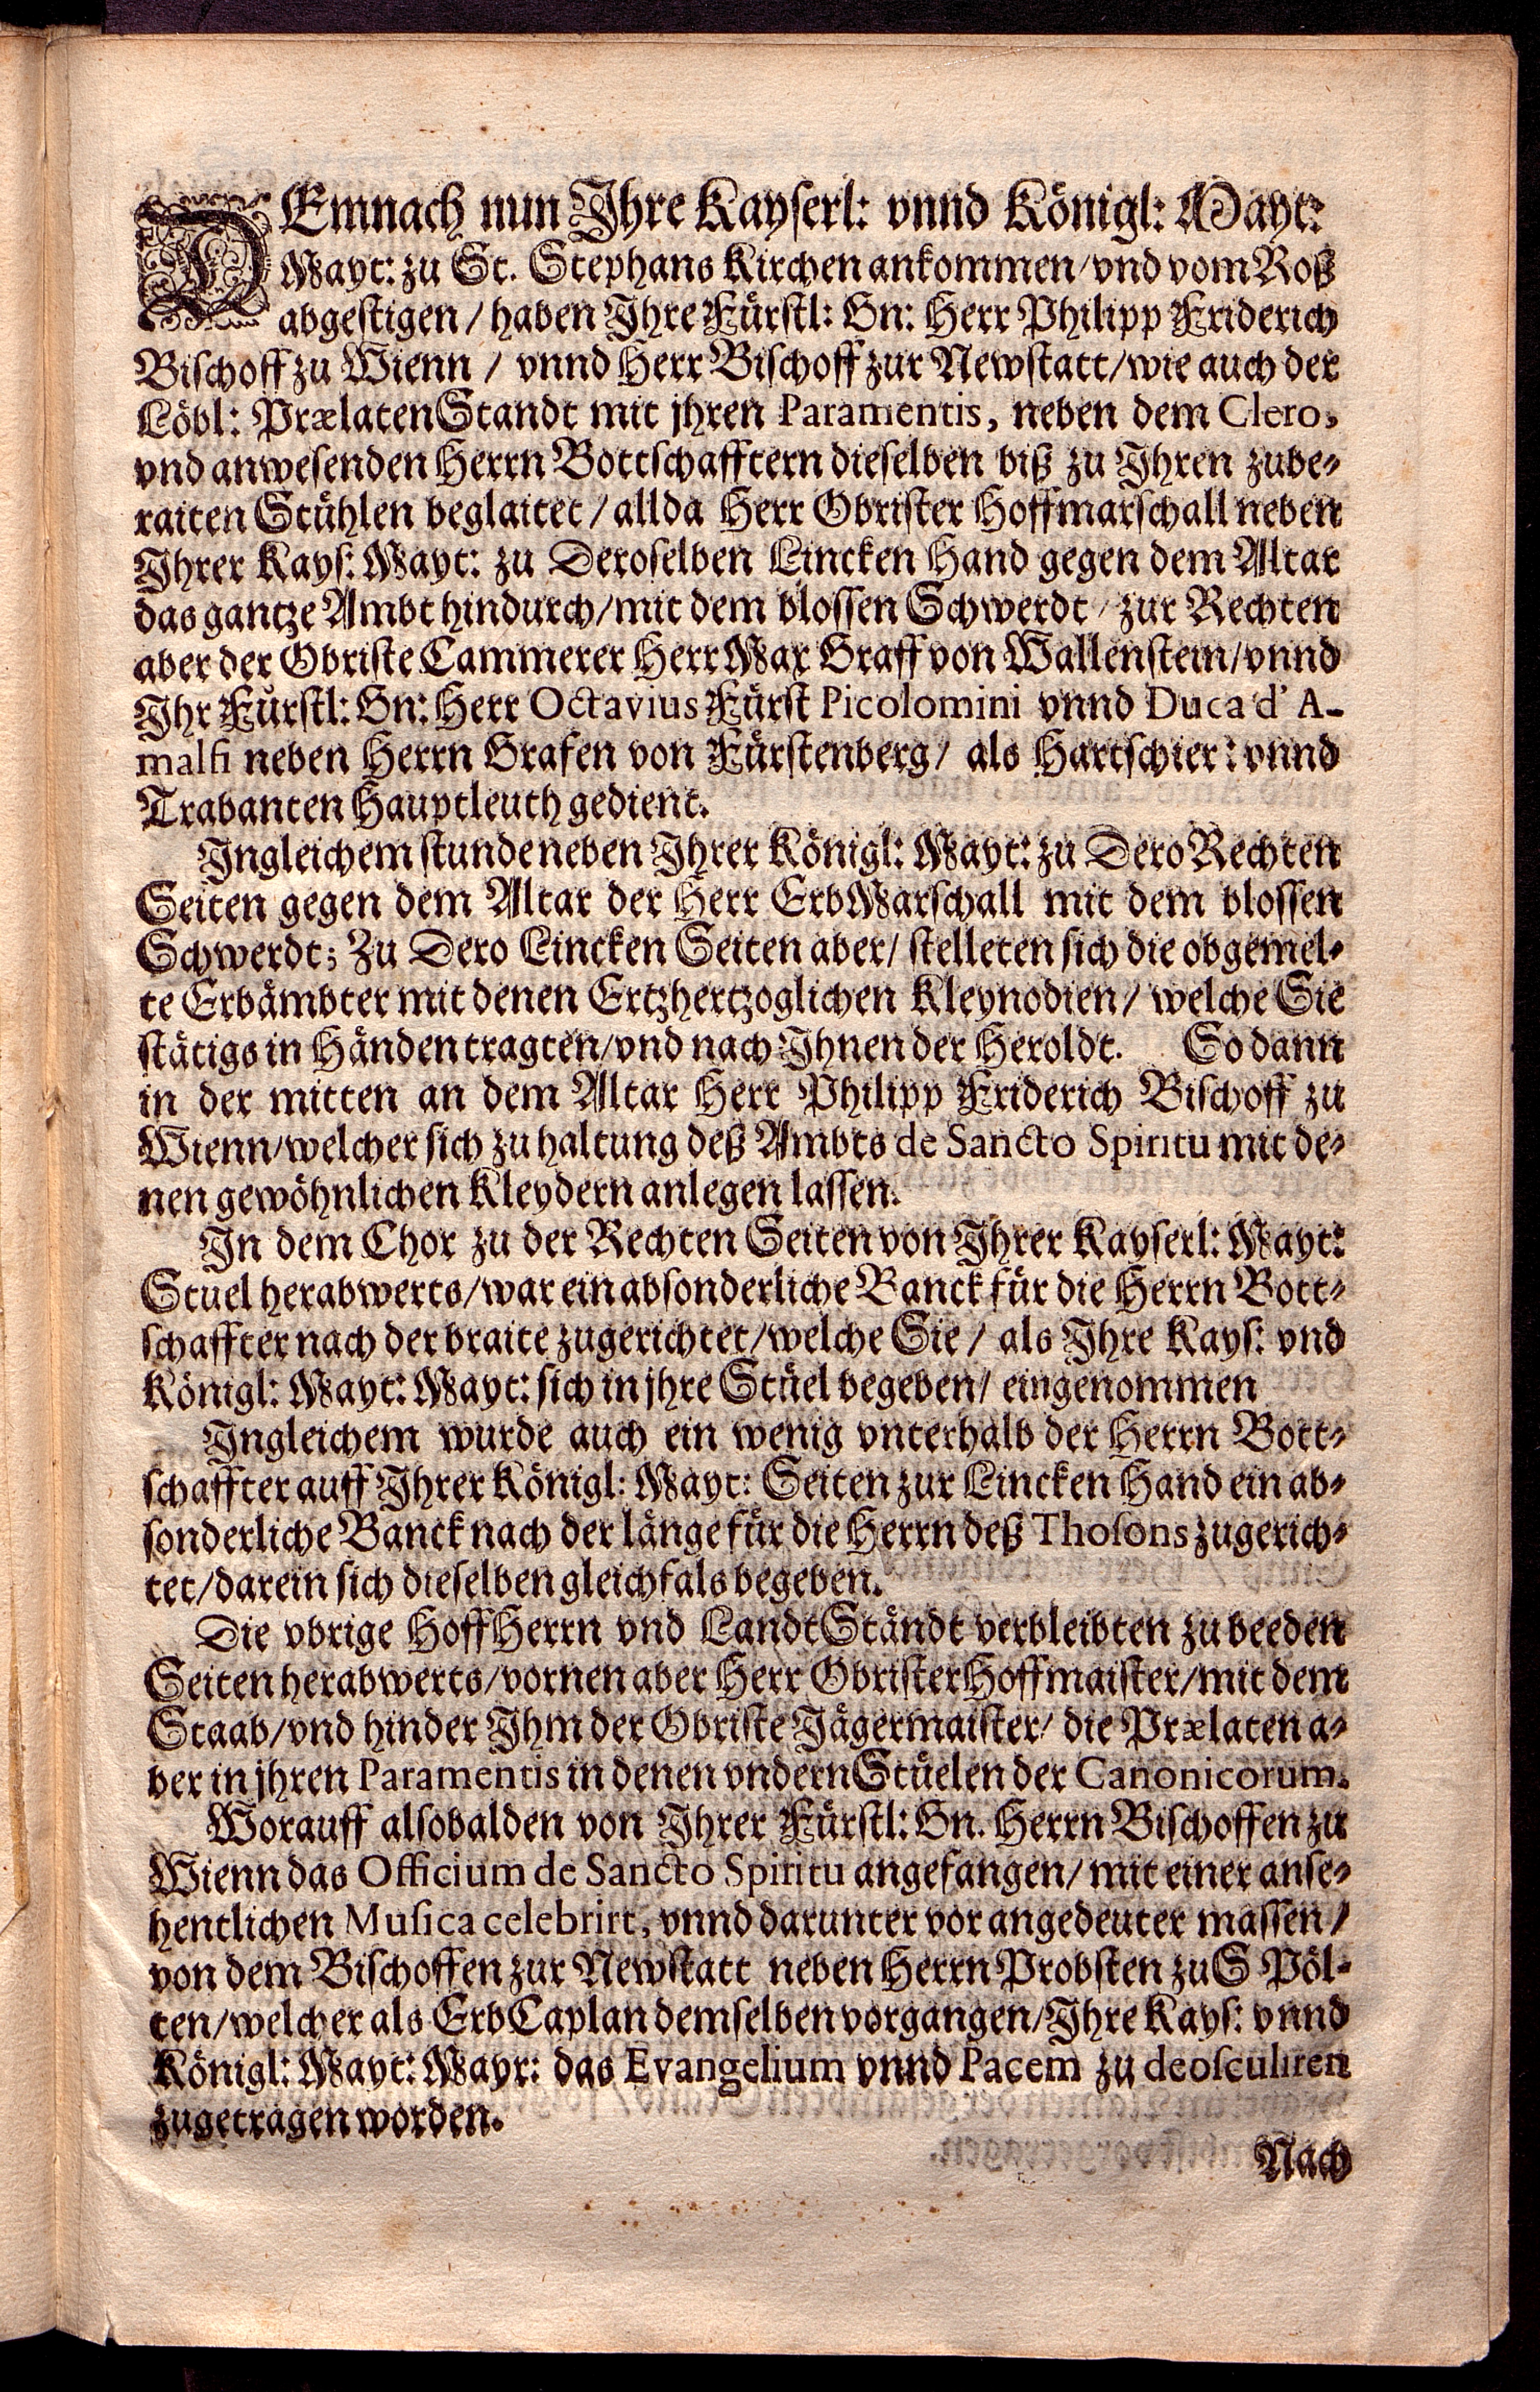 DEmnach nun Ihre Kayserl: vnnd Königl: Mayt:
Mayt: zu St. Stephans Kirchen ankommen/vnd vom Roß
abgestigen / haben Ihre Fürstl: Gn: Herr Philipp Friderich
Bischoff zu Wienn / vnnd Herr Bischoff zur Newstatt/wie auch der
Löbl: PrælatenStandt mit jhren Paramentis, neben dem Clero,
vnd anwesenden Herrn Bottschafftern dieselben biß zu Ihren zube-
raiten Stühlen beglaitet / allda Herr Obrister Hoffmarschall neben
Ihrer Kays: Mayt: zu Deroselben Lincken Hand gegen dem Altar
das gantze Ambt hindurch/mit dem blossen Schwerdt / zur Rechten
aber der Obriste Cammerer Herr Max Graff von Wallenstein/vnnd
Ihr Fürstl: Gn: Herr Octavius Fürst Picolomini vnnd Duca d' A-
malfi neben Herrn Grafen von Fürstenberg/ als Hartschier: vnnd
Trabanten Hauptleuth gedient.
Ingleichem stunde neben Ihrer Königl: Mayt: zu Dero Rechten
Seiten gegen dem Altar der Herr ErbMarschall mit dem blossen
Schwerdt; Zu Dero Lincken Seiten aber/ stelleten sich die obgemel-
te Erbämbter mit denen Ertzhertzoglichen Kleynodien / welche Sie
stätigs in Händen tragten/vnd nach Ihnen der Heroldt. So dann
in der mitten an dem Altar Herr Philipp Friderich Bischoff zu
Wienn/welcher sich zu haltung deß Ambts de Sancto Spiritu mit de-
nen gewöhnlichen Kleydern anlegen lassen.
In dem Chor zu der Rechten Seiten von Ihrer Kayserl: Mayt:
Stuel herabwerts/war ein absonderliche Banck für die Herrn Bott-
schaffter nach der braite zugerichtet/welche Sie / als Ihre Kays: vnd
Königl: Mayt: Mayt: sich in jhre Stüel begeben/ eingenommen
Ingleichem wurde auch ein wenig vnterhalb der Herrn Bott-
schaffter auff Ihrer Königl: Mayt: Seiten zur Lincken Hand ein ab-
sonderliche Banck nach der länge für die Herrn deß Thosons zugerich-
tet/darein sich dieselben gleichfals begeben.
Die vbrige HoffHerrn vnd LandtStändt verbleibten zu beeden
Seiten herabwerts/vornen aber Herr Obrister Hoffmaister/mit dem
Staab/vnd hinder Ihm der Obriste Jägermaister/ die Prælaten a-
ber in jhren Paramentis in denen vndern Stüelen der Canonicorum.
Worauff alsobalden von Ihrer Fürstl: Gn. Herrn Bischoffen zu
Wienn das Officium de Sancto Spiritu angefangen/ mit einer anse-
hentlichen Musica celebrirt, vnnd darunter vor angedeuter massen /
von dem Bischoffen zur Newstatt neben Herrn Probsten zu S Pöl-
ten/welcher als ErbCaplan demselben vorgangen/Ihre Kays: vnnd
Königl: Mayt: Mayr: das Evangelium vnnd Pacem zu deosculiren
zugetragen worden.
Nach